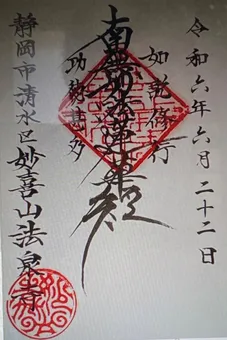 令和六年六月二十二日
如説修行
南無妙法蓮華経
功徳甚多
静岡市清水区妙喜山法泉寺